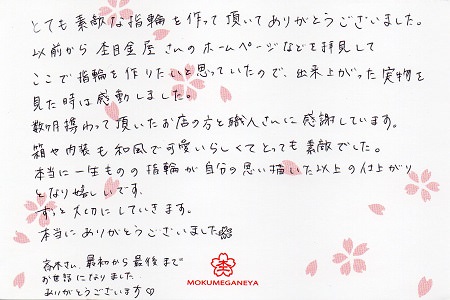 とても素敵な指輪を作って頂いてありがとうございました。
以前から杢目金屋さんのホームページなどを拝見して
ここで指輪を作りたいと思っていたので、出来上がった実物を
見た時は感動しました。
数ヶ月携わって頂いたお店の方と職人さんに感謝しています。
箱や内装も和風で可愛いらしくてとっても素敵でした。
本当に一生ものの指輪が自分の思い描いた以上の仕上がり
となり嬉しいです。
ずっと大切にしていきます。
本当にありがとうございました
斎木さん、最初から最後まで
お世話になりました…
ありがとうございます♡
MOKUMEGANEYA